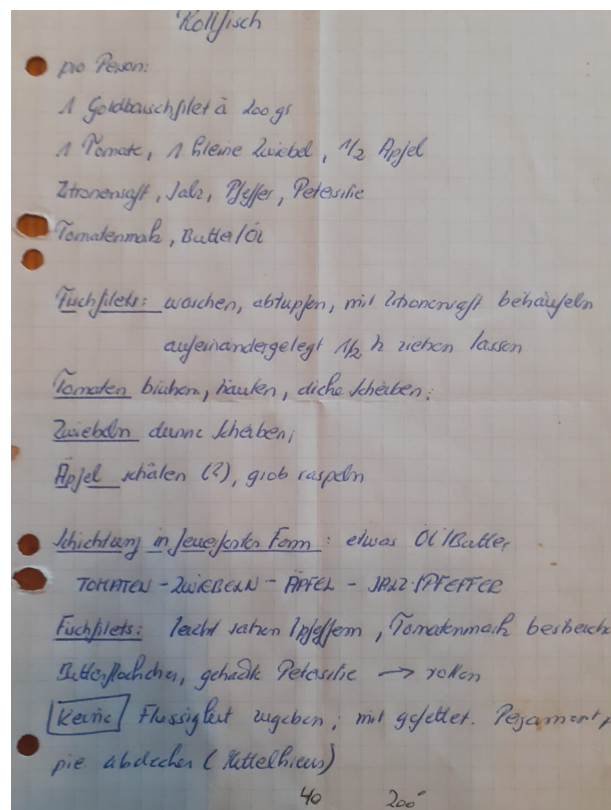 Rollfisch
pro Person:
1 Goldbarschfilet à 200 gr
1 Tomate, 1 kleine Zwiebel, 1/2 Apfel
Zitronensaft, Salz, Pfeffer, Petersilie
Tomatenmark, Butter/Öl
Fischfilets: waschen, abtupfen, mit Zitronensaft beträufeln
aufeinandergelegt 1/2 h ziehen lassen
Tomaten brühen, häuten, dicke Scheiben;
Zwiebeln dünne Scheiben;
Äpfel schälen (?), grob raspeln
Schichtung in feuerfester Form: etwas Öl/Butter
TOMATEN - ZWIEBELN - ÄPFEL - SALZ/PFEFFER
Fischfilets: leicht salzen/pfeffern, Tomatenmark bestreiche
Butterflöckchen, gehackte Petersilie → rollen
Keine Flüssigkeit zugeben; mit gefettet. Pergamentpa
pier abdecken (Mittelhitze)
40 200°